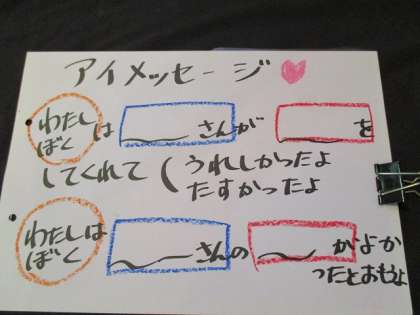 アイメッセージ
わたし
ぼく は ＿＿＿さんが ＿＿＿を
してくれて ( うれしかったよ
たすかったよ
わたしは
ぼく ＿＿＿さんの ＿＿＿がよか
ったとおもうよ